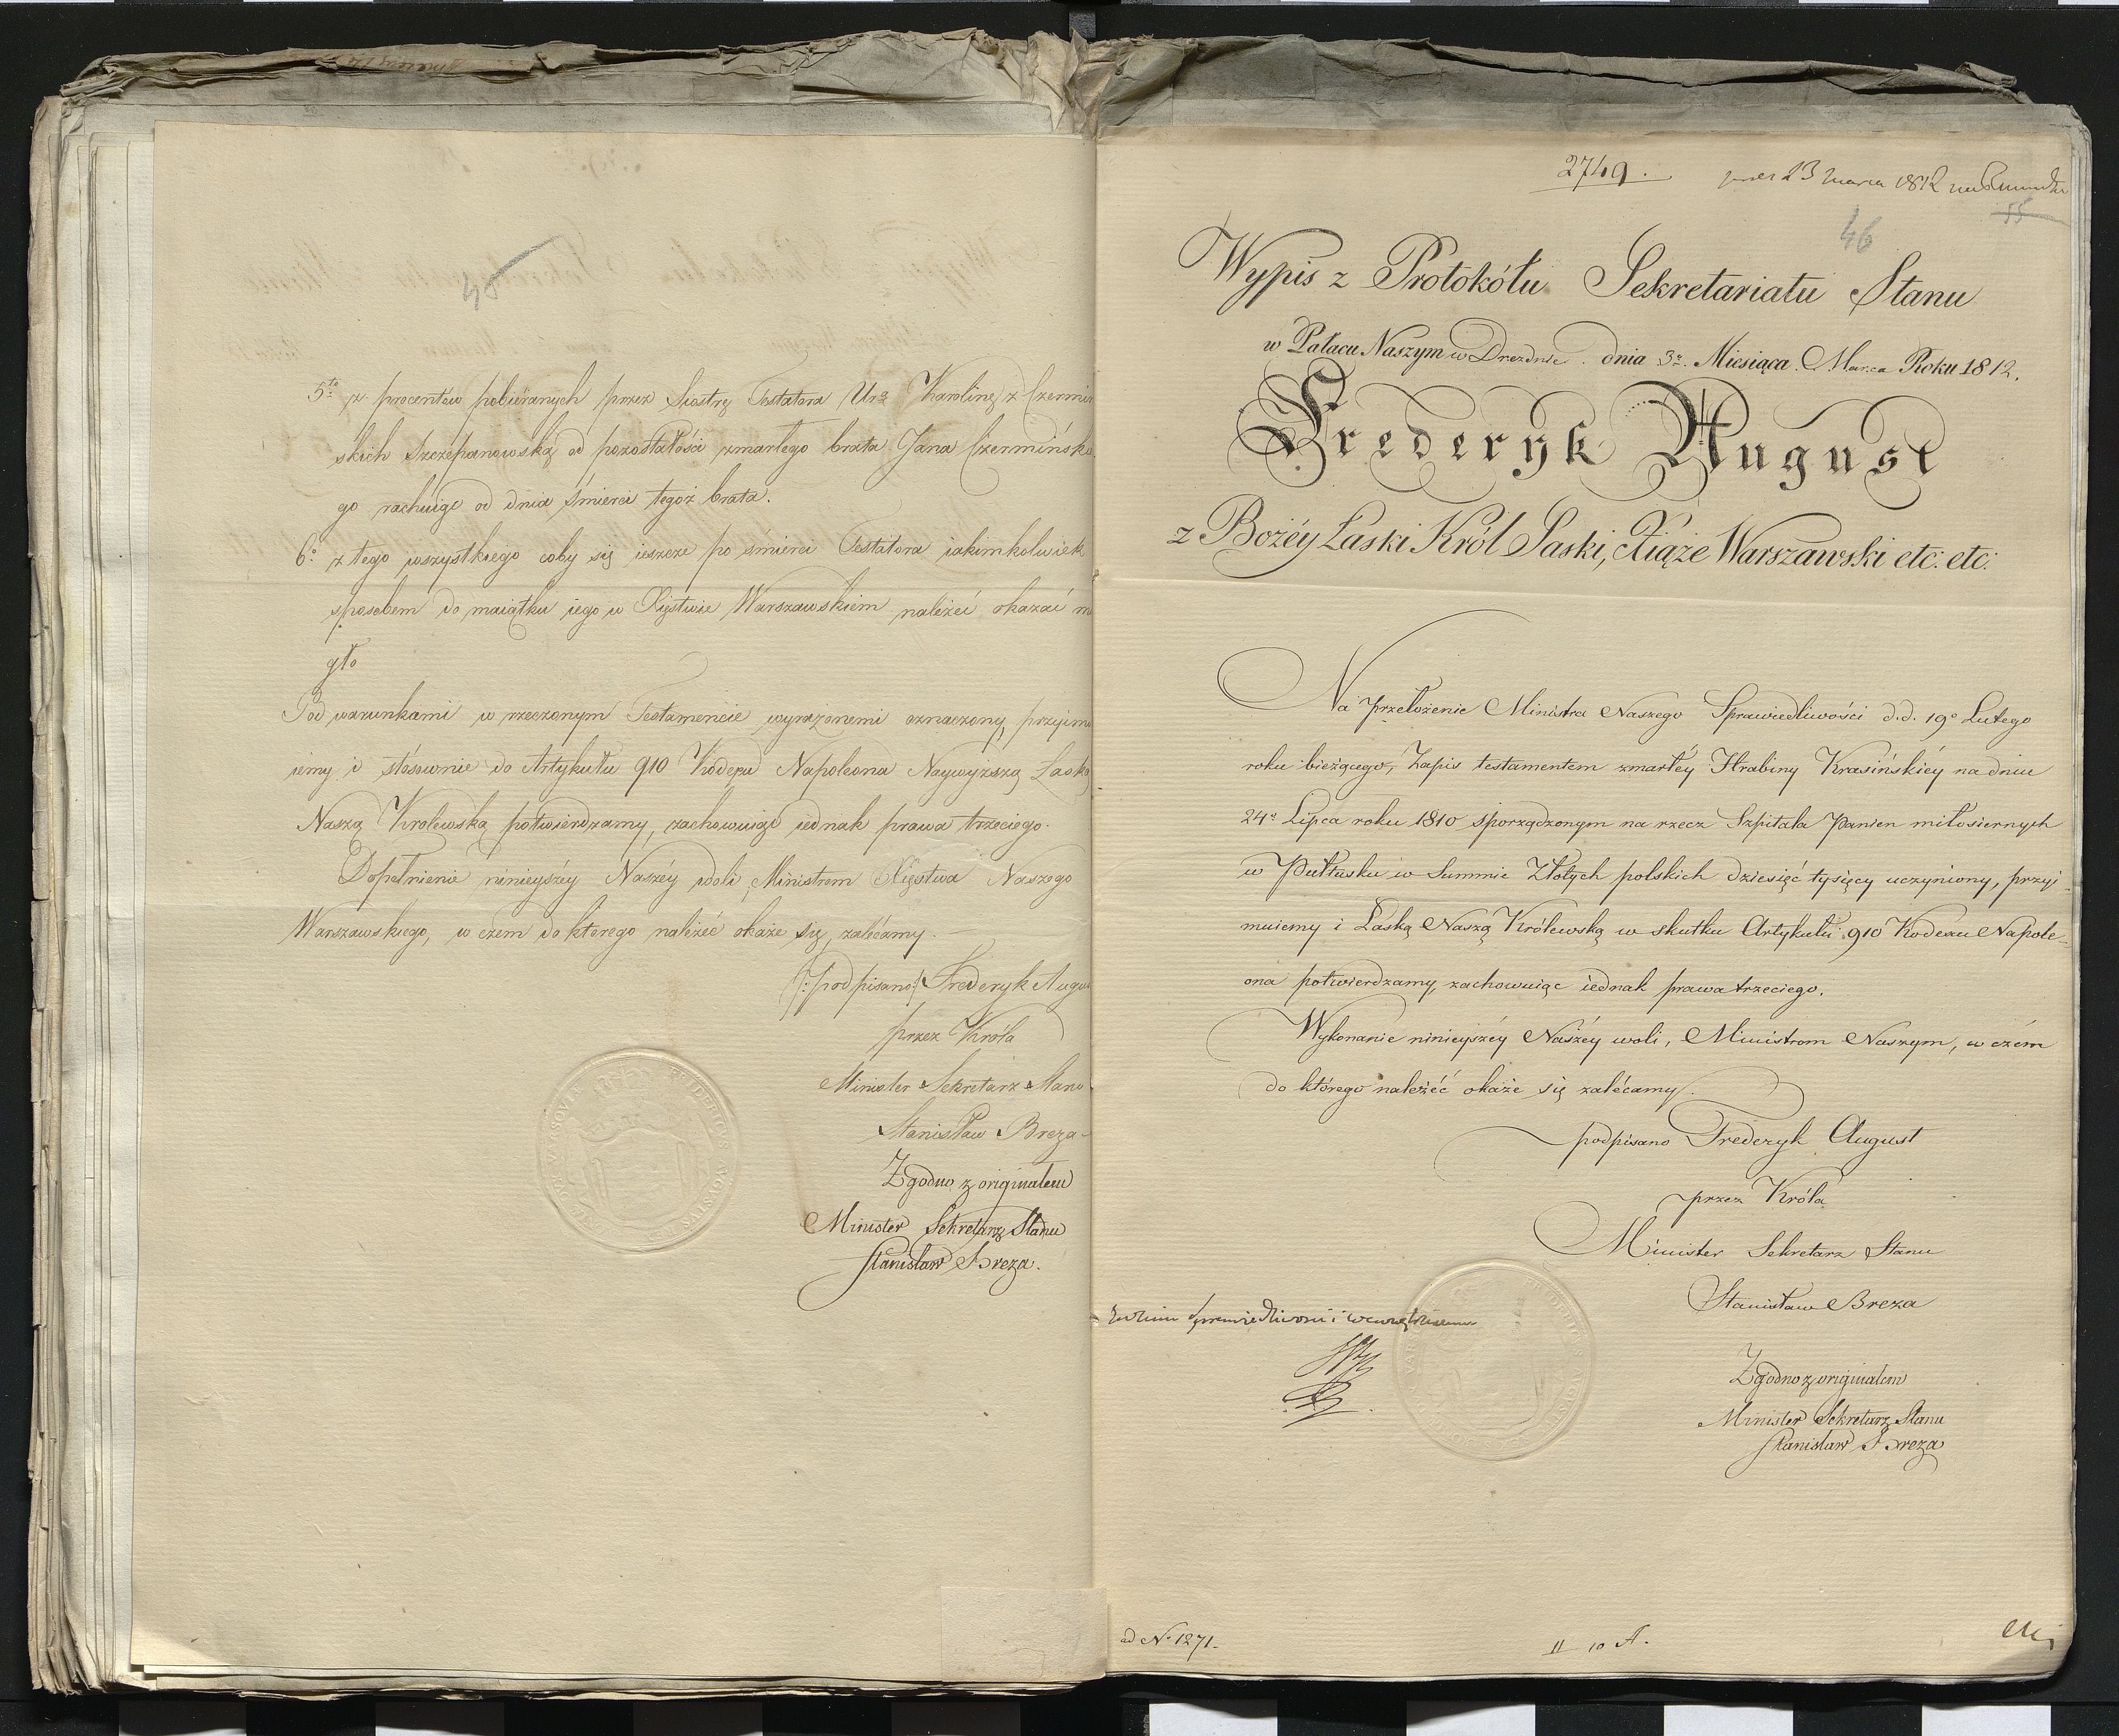 45
5to z procentów pobieranych przez Siostrę Testatora Urę Karolinę z Czermiń
skich Szczepanowską od pozostałości zmarłego brata Jana Czermińskie
go rachuiąc od dnia śmierci tegoż brata.
6o z tego wszystkiego coby się ieszcze po śmierci Testatora iakimkolwiek
sposobem do maiątku iego w Xięstwie Warszawskiem należeć okazać mo
gło
Pod warunkami w rzeczonym Testamencie wyrażonemi oznaczony, przyimu
iemy i stósownie do Artykułu 910 Kodexu Napoleona Naywyższą Łaską
Naszą Krolewską potwierdzamy, zachowuiąc iednak prawa trzeciego.
Dopełnienie ninieyszéy Naszéy woli Ministrom Xięstwa Naszego
Warszawskiego, w czem do ktorego należéć okaże się, zalécamy.
/:podpisano:/ Frederyk Augu
przez Króla
Minister Sekretarz Stanu
Stanisław Breza
Zgodno z originałem
Minister Sekretarz Stanu
Stanisław Breza.
2749. 23 marca 1812
55
46
Wypis z Protokółu Sekretariatu Stanu
w Pałacu Naszym w Dreznie dnia 3o. Miesiąca Marca Roku 1812.
Frederyk August
z Bożéy Łaski Król Saski, Xiąże Warszawski etc: etc:
Na przełożenie Ministra Naszego Sprawiedliwości d.d. 19o Lutego
roku bieżącego, Zapis testamentem zmarłéy Hrabiny Krasińskiéy na dniu
24o Lipca roku 1810 sporządzonym na rzecz Szpitala Panien miłosiernych
w Pułtusku w Summie Złotych polskich dziesięć tysięcy uczyniony, przyj
muiemy i Łaską Naszą Królewską w skutku Artykułu 910 Kodexu Napole-
ona potwierdzamy, zachowuiąc iednak prawa trzeciego.
Wykonanie ninieyszéy Naszéy woli, Ministrom Naszym, w czém
do którego należéć okaże się zalécamy.
podpisano Frederyk August
przez Króla
Minister Sekretarz Stanu
Stanisław Breza
Sprawiedliwości i
Zgodno z originałem
Minister Sekretarz Stanu
Stanisław Breza
ad No 1271.
II 10 A.